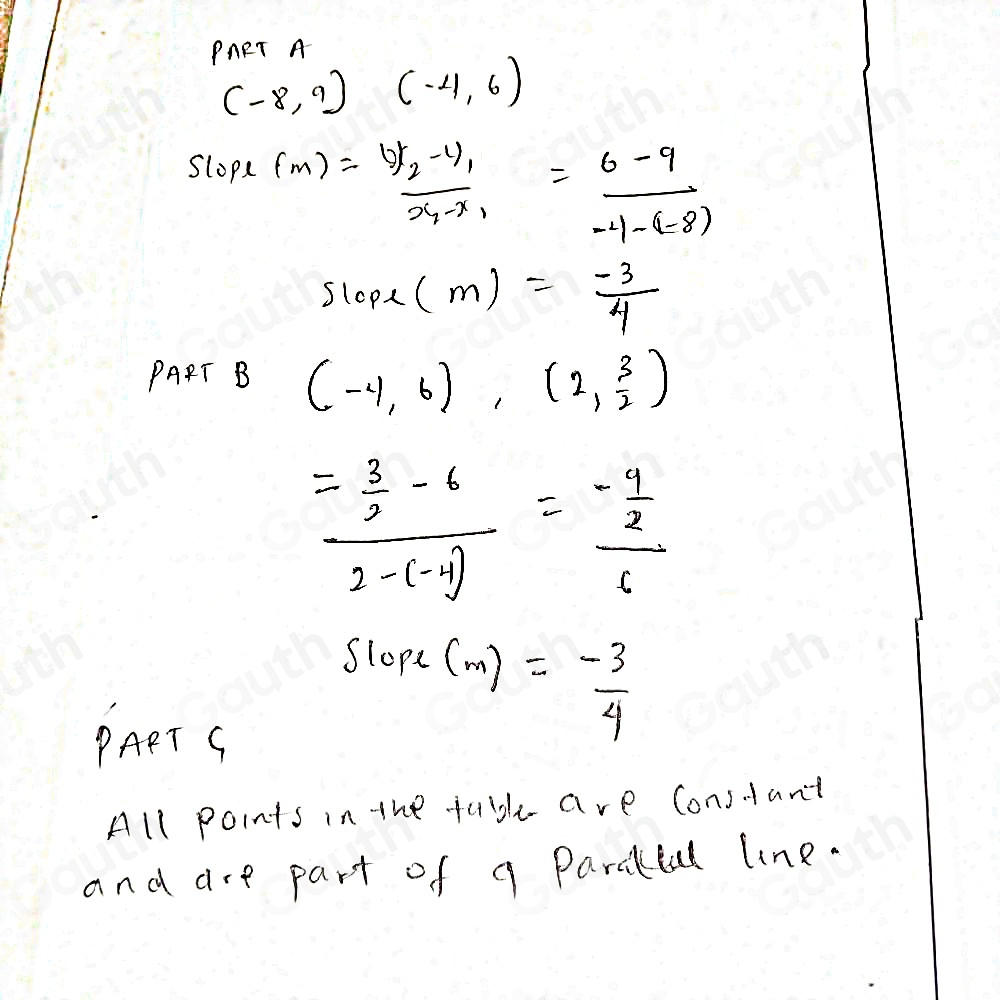 PART A
(-8, 9) (-4, 6)
Slope (m) = y₂ - y₁ / x₂ - x₁ = 6 - 9 / -4 - (-8)
Slope (m) = -3/4
PART B (-4, 6), (2, 3/2)
= 3/2 - 6 / 2 - (-4) = -9/2 / 6
Slope (m) = -3/4
PART C
All points in the table are constant
and are part of a parallel line.